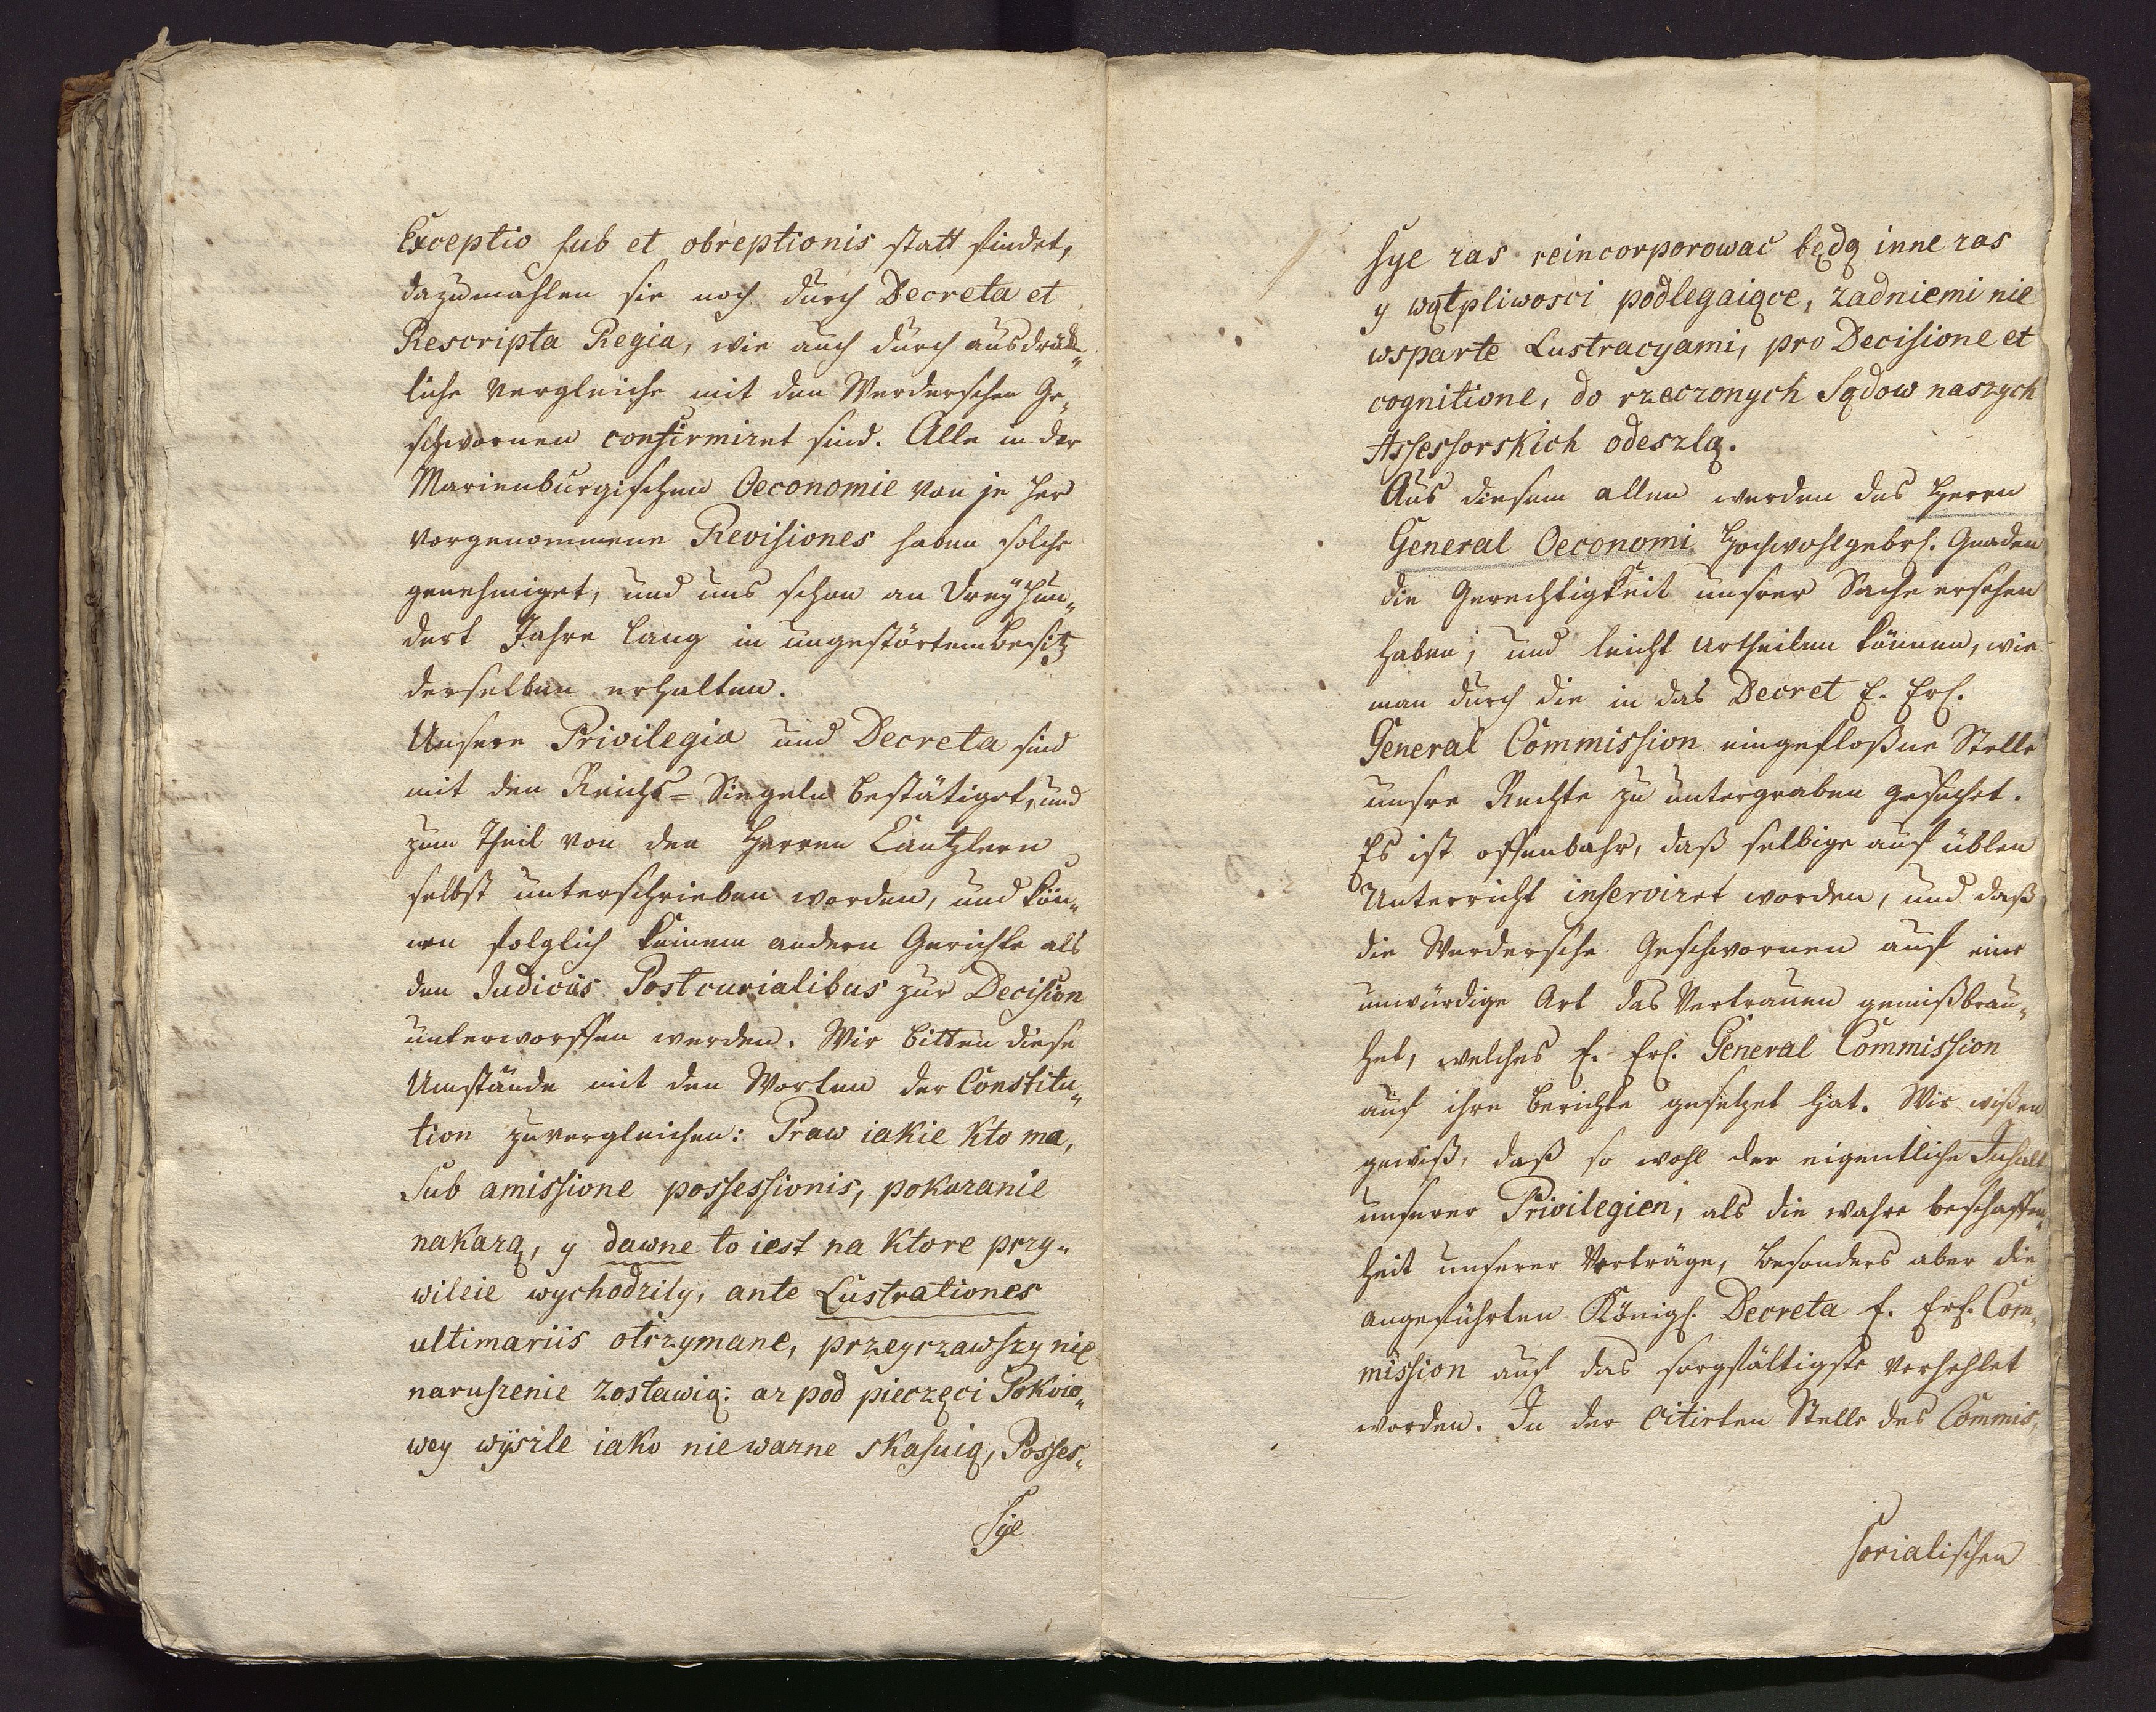 Exceptio sub et obreptionis statt findet,
dazumahlen sie noch durch Decreta et
Rescripta Regia, wie auch durch ausdrük„
liche Vergleiche mit den Werderschen Ge„
schwornen confirmiret sind. Alle in der
Marienburgischen Oeconomie von je her
vorgenommene Revisiones haben solche
genehmiget, und uns schon an dreyhun„
dert Jahre lang in ungestörtem Besitz
derselben erhalten.
Unsere Privilegia und Decreta sind
mit den Reichs-Siegeln bestätiget, und
zum Theil von den Herren Cantzlern
selbst unterschrieben worden, und kön„
nen folglich keinem andern Gerichte als
den Judiciis Postcurialibus zur Decision
unterworffen werden. Wir bitten diese
Umstände mit den Worten der Constitu„
tion zuvergleichen: Praw iakie kto ma,
Sub amissione possessionis, pokazanie
nakazą, y dawne to iest na ktore przy„
wileie wychodzily, ante Lustrationes
ultimariis otrzymane, przeyrzawszy nie
naruszenie zostawią: az pod pieczęci Pokoio„
wey wÿszle iako nie wazne skasuią, Posses„
sye
sye zas reincorporowac będą inne zas
y wątpliwosci podlegaiące, zadniemi nie
wsparte Lustracyami, pro Decisione et
cognitione, do rzeczonych Sądow naszych
Assessorskich odeszlą.
Aus diesem allen werden des Herrn
General Oeconomi Hochwohlgebrl. Gnaden
die Gerechtigkeit unsrer Sache ersehen
haben, und leicht urtheilen können, wie
man durch die in das Decret E. Erl.
General Commission eingefloßne Stelle
unsre Rechte zu untergraben gesuchet.
Es ist offenbahr, daß selbige auf üblen
Unterricht inseriret worden, und daß
die Werdersche Geschwornen auf eine
unwürdige Art das Vertrauen gemißbrau„
chet, welches E. Erl. General Commission
auf ihre Berichte gesetzet hat. Wir wißen
gewiß, daß so wohl der eigentliche Inhalt
unserer Privilegien, als die wahre Beschaffen„
heit unserer Verträge, besonders aber die
angeführten Königl. Decreta E. Erl. Com„
mission auf das sorgfältigste verhehlet
worden. In der citirten Stelle des Commis„
sorialischen